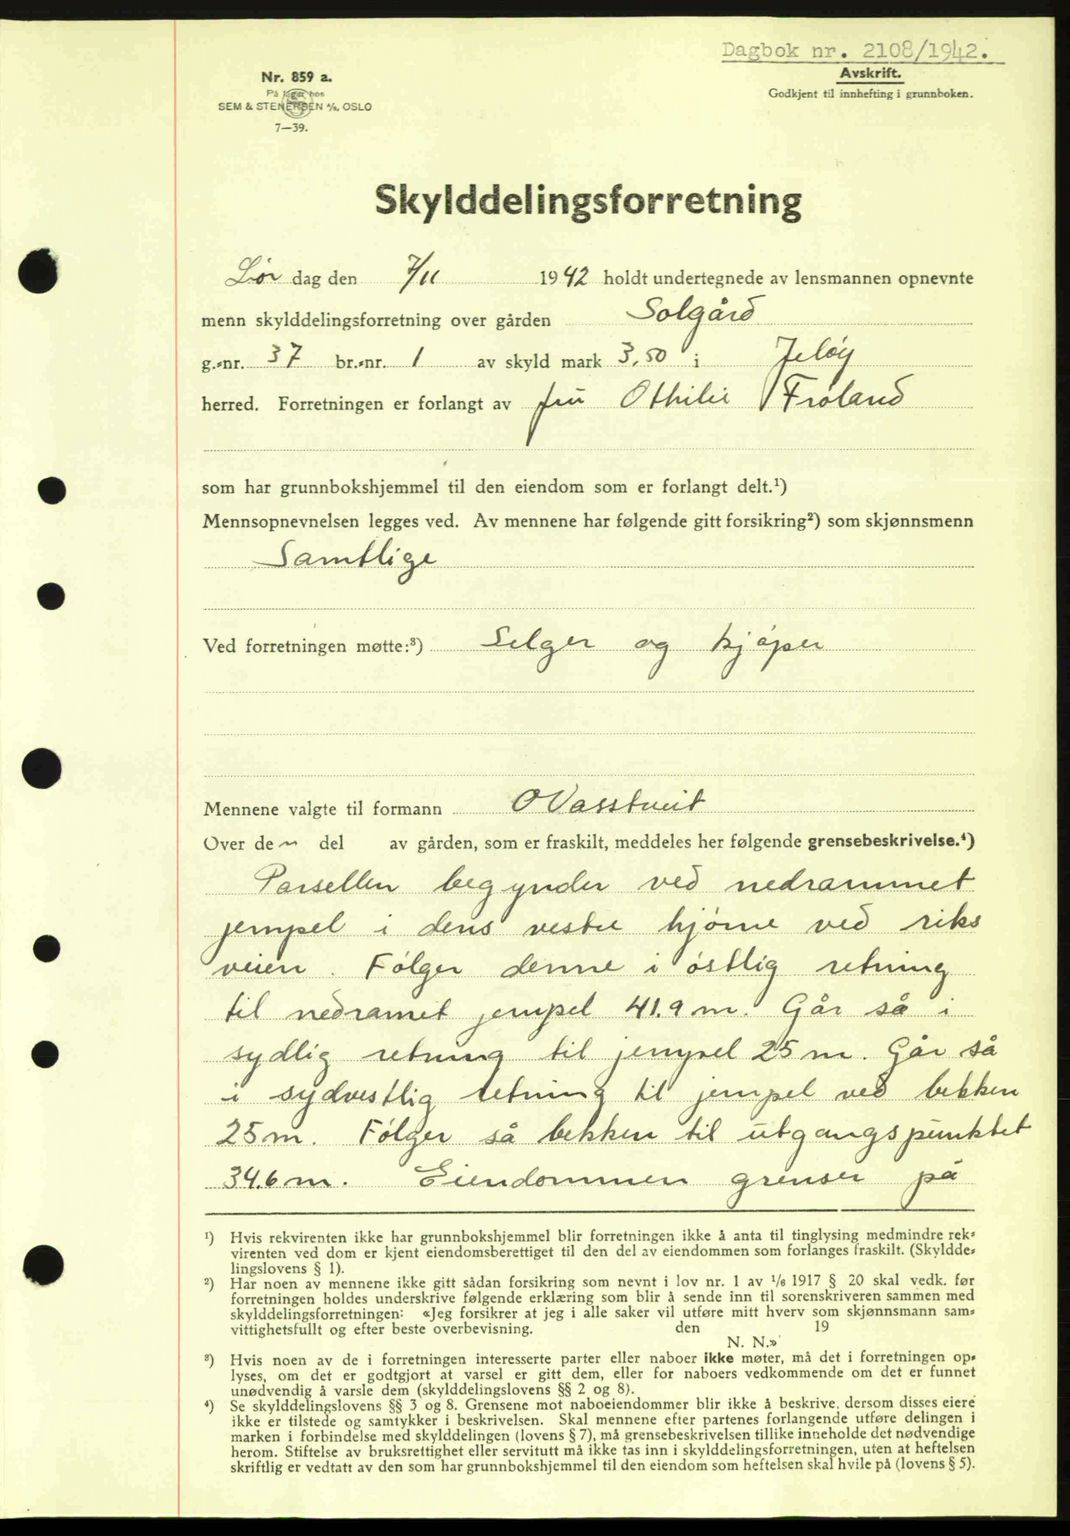 Dagbok nr. 2108/1942.
Avskrift.
Godkjent til innhefting i grunnboken.
Nr. 859 a.
På lager hos
SEM & STENERSEN A/S, OSLO
7—39.
Skylddelingsforretning
Lør dag den 7/11 1942 holdt undertegnede av lensmannen opnevnte
menn skylddelingsforretning over gården Solgård
g.-nr. 37 br.-nr. 1 av skyld mark 3,50 i Jeløy
herred. Forretningen er forlangt av fru Othilie Frøland
som har grunnbokshjemmel til den eiendom som er forlangt delt.¹)
Mennsopnevnelsen legges ved. Av mennene har følgende gitt forsikring²) som skjønnsmenn
Samtlige
Ved forretningen møtte:³) Selger og kjøper
Mennene valgte til formann O Vasstveit
Over de n del av gården, som er fraskilt, meddeles her følgende grensebeskrivelse.⁴)
Parsellen begynder ved nedrammet
jempel i dens vestre hjørne ved riks
veien. Følger denne i østlig retning
til nedramet jempel 41.9 m. Går så i
sydlig retning til jempel 25 m. Går så
i sydvestlig retning til jempel ved bekken
25 m. Følger så bekken til utgangspunktet
34.6 m. Eiendommen grenser på
¹) Hvis rekvirenten ikke har grunnbokshjemmel blir forretningen ikke å anta til tinglysing medmindre rek-
virenten ved dom er kjent eiendomsberettiget til den del av eiendommen som forlanges fraskilt. (Skyldde-
lingslovens § 1).
²) Har noen av mennene ikke gitt sådan forsikring som nevnt i lov nr. 1 av 1/6 1917 § 20 skal vedk. før
forretningen holdes underskrive følgende erklæring som blir å sende inn til sorenskriveren sammen med
skylddelingsforretningen: «Jeg forsikrer at jeg i alle saker vil utføre mitt hverv som skjønnsmann sam-
vittighetsfullt og efter beste overbevisning. den 19
N. N.»
³) Hvis noen av de i forretningen interesserte parter eller naboer ikke møter, må det i forretningen op-
lyses, om det er godtgjort at varsel er gitt dem, eller for naboers vedkommende om det er funnet
unødvendig å varsle dem (skylddelingslovens §§ 2 og 8).
⁴) Se skylddelingslovens §§ 3 og 8. Grensene mot naboeiendommer blir ikke å beskrive, dersom disses eiere
ikke er tilstede og samtykker i beskrivelsen. Skal mennene efter partenes forlangende utføre delingen i
marken i forbindelse med skylddelingen (lovens § 7), må grensebeskrivelsen tillike inneholde det nødvendige
herom. Stiftelse av bruksrettighet eller servitutt må ikke tas inn i skylddelingsforretningen, uten at heftelsen
skriftlig er vedtatt av den som har grunnbokshjemmel til den eiendom som heftelsen skal hvile på (lovens § 5).